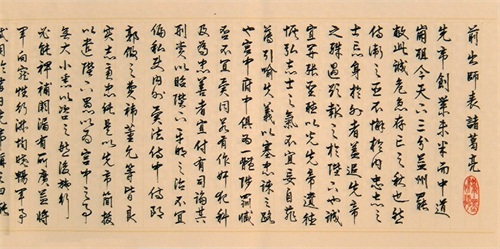 前出師表 諸葛亮
先帝創業未半而中道
崩殂今天下三分益州罷
敝此誠危急存亡之秋也然
侍衛之臣不懈於內忠志之
士忘身於外者蓋追先帝
之殊遇欲報之於陛下也誠
宜開張聖聽以光先帝遺德
恢弘志士之氣不宜妄自菲
薄引喻失義以塞忠諫之路
也宮中府中俱為一體陟罰臧
否不宜異同若有作奸犯科
及為忠善者宜付有司論其
刑賞以昭陛下平明之治不宜
偏私使內外異法侍中侍郎
郭攸之費禕董允等皆良
實志慮忠純是以先帝簡拔
以遺陛下愚以為宮中之事
無大小悉以咨之然後施行
必能裨補闕漏有所廣益將
軍向寵性行淑均曉暢軍事
試用於昔日先帝